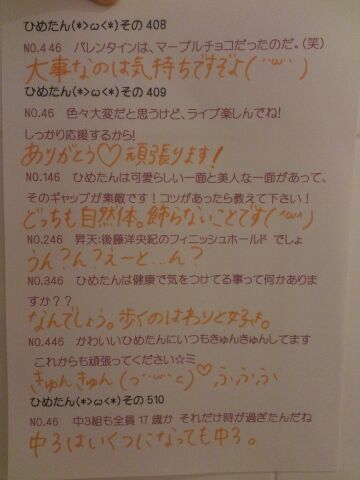 ひめたん(*>ω<*)その408
NO.446　バレンタインは、マーブルチョコだったのだ。(笑)
大事なのは気持ちですぞよ(´･ω･`)
ひめたん(*>ω<*)その409
NO.46　色々大変だと思うけど、ライブ楽しんでね!
しっかり応援するから!
ありがとう♡頑張ります!
NO.146　ひめたんは可愛らしい一面と美人な一面があって、
そのギャップが素敵です!コツがあったら教えて下さい!
どっちも自然体。飾らないことです(^ω^)
NO.246　昇天:後藤洋央紀のフィニッシュホールド でしょ
うん?ん?えーと…ん?
NO.346　ひめたんは健康で気をつけてる事って何かありま
すか??
なんでしょう。歩くのはわりと好きよ。
NO.446　かわいいひめたんにいつもきゅんきゅんしてます
これからも頑張ってください☆ミ
きゅんきゅん(っ´ω`c)♡ふふふ
ひめたん(*>ω<*)その510
NO.46　中3組も全員17歳か それだけ時が過ぎたんだね
中3はいくつになっても中3。